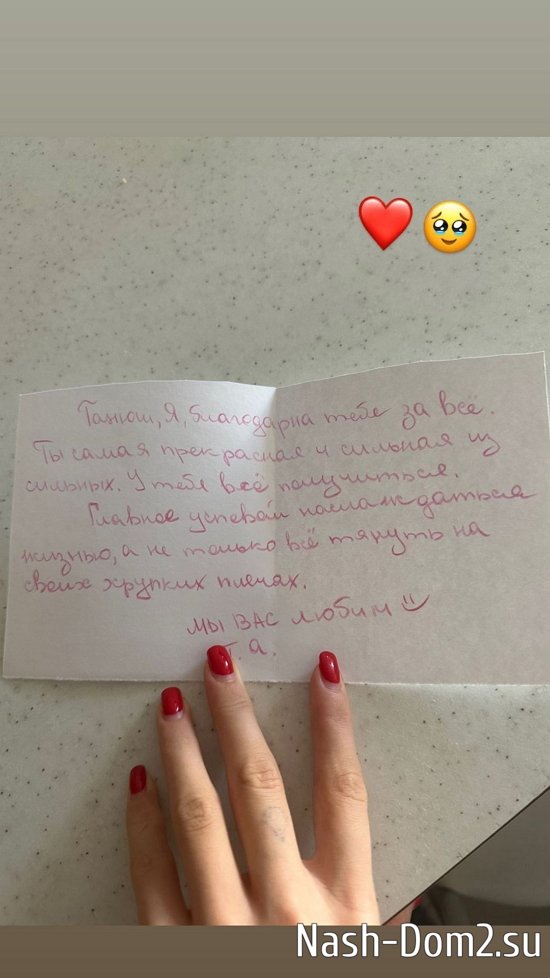 Танюш, Я, благодарна тебе за всё.
Ты самая прекрасная и сильная из
сильных. У тебя всё получиться.
Главное успевай наслаждаться
жизнью, а не только всё тянуть на
своих хрупких плечах.
МЫ ВАС ЛЮБИМ
Т. А.
Nash-Dom2.su